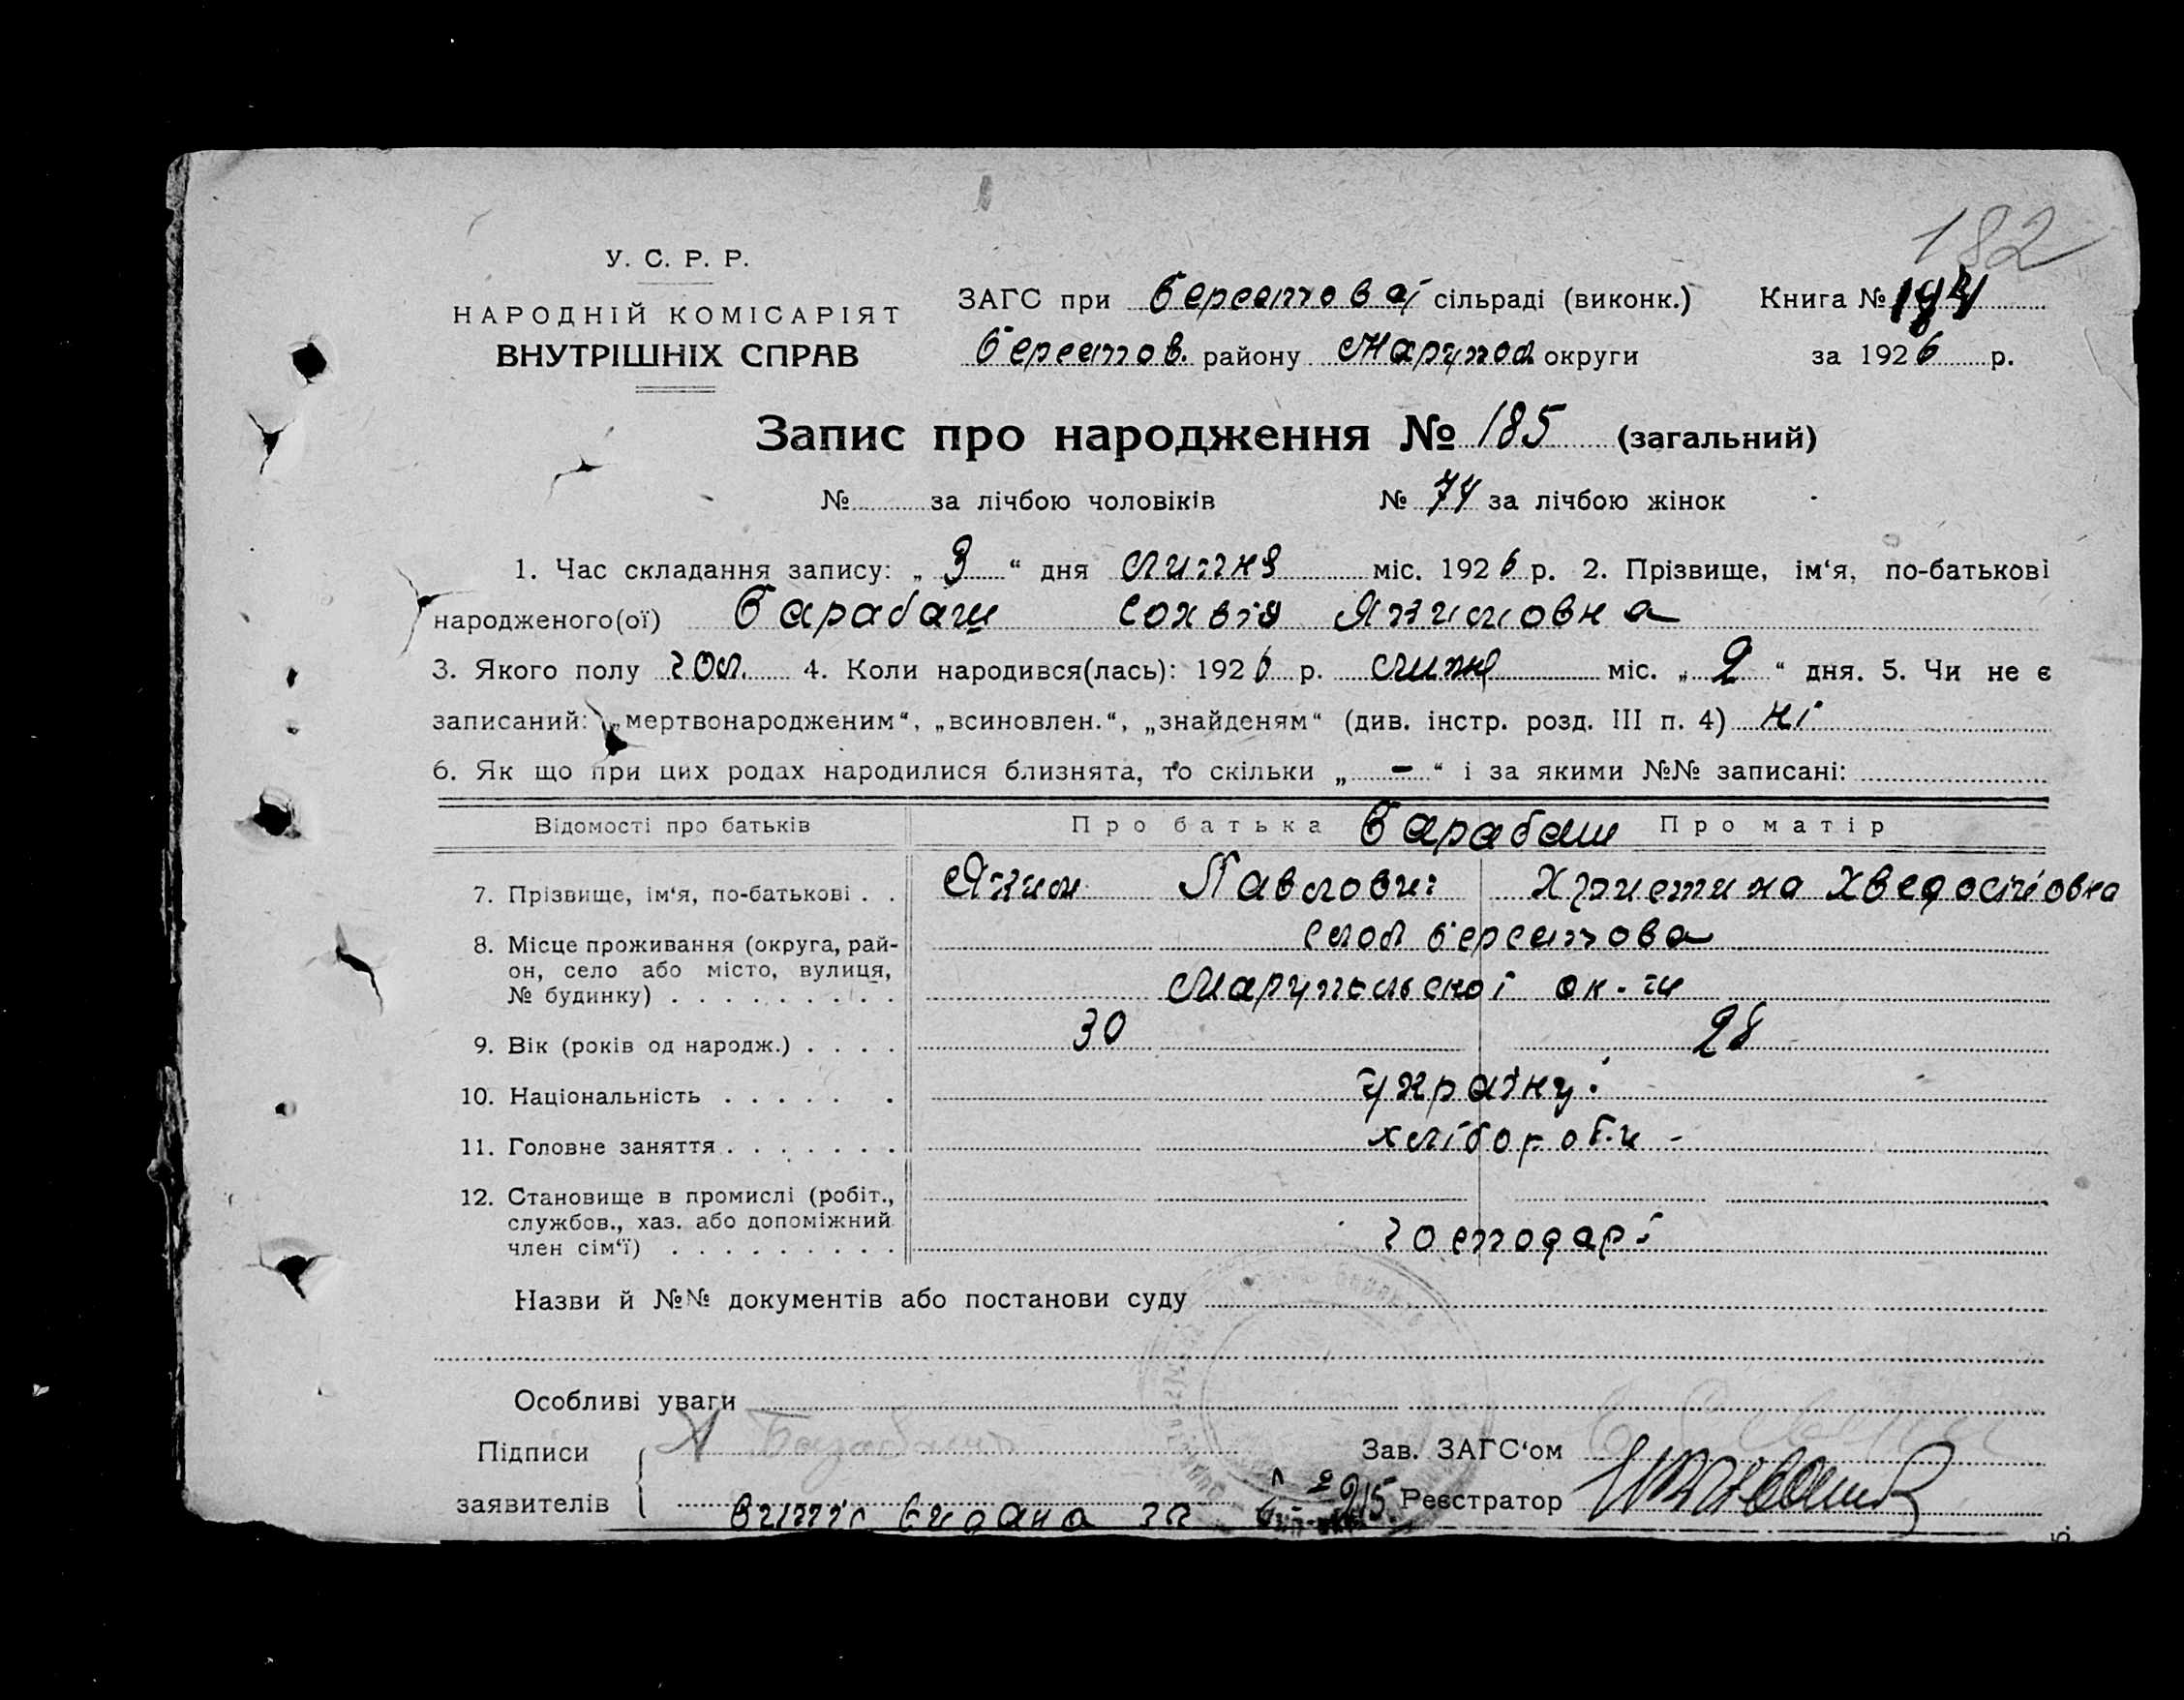 182
У. С. Р. Р.
НАРОДНІЙ КОМІСАРІЯТ
ВНУТРІШНІХ СПРАВ
ЗАГС при Берестовій сільраді (виконк.) Книга №
Берестов. району Маріупол округи за 1926 р.
Запис про народження № 185 (загальний)
№ за лічбою чоловіків № 74 за лічбою жінок
1. Час складання запису: „ 3 “ дня липня міс. 1926 р. 2. Прізвище, ім‘я, по-батькові
народженого(ої) Барабаш Сохвія Якимовна
3. Якого полу 4. Коли народився(лась): 1926 р. липня міс. „ 2 “ дня. 5. Чи не є
записаний: „мертвонародженим“, „всиновлен.“, „знайденям“ (див. інстр. розд. III п. 4) ні
6. Як що при цих родах народилися близнята, то скільки „ – “ і за якими №№ записані:
Відомості про батьків Про батька Барабаш Про матір
7. Прізвище, ім‘я, по-батькові . . Яким Павлович Христина Хведосіївна
8. Місце проживання (округа, рай-
он, село або місто, вулиця,
№ будинку) . . . . . . . . .
слоб Берестова
Маріупільської ок-ги
9. Вік (років од народж.) . . . . 30 28
10. Національність . . . . . . українці
11. Головне заняття . . . . . . . хлібороби -
12. Становище в промислі (робіт.,
службов., хаз. або допоміжний
член сім‘ї) . . . . . . . . .
господарі
Назви й №№ документів або постанови суду
Особливі уваги
Підписи
заявителів
Я Барабаш
Зав. ЗАГС‘ом
Реєстратор
видана за № 215